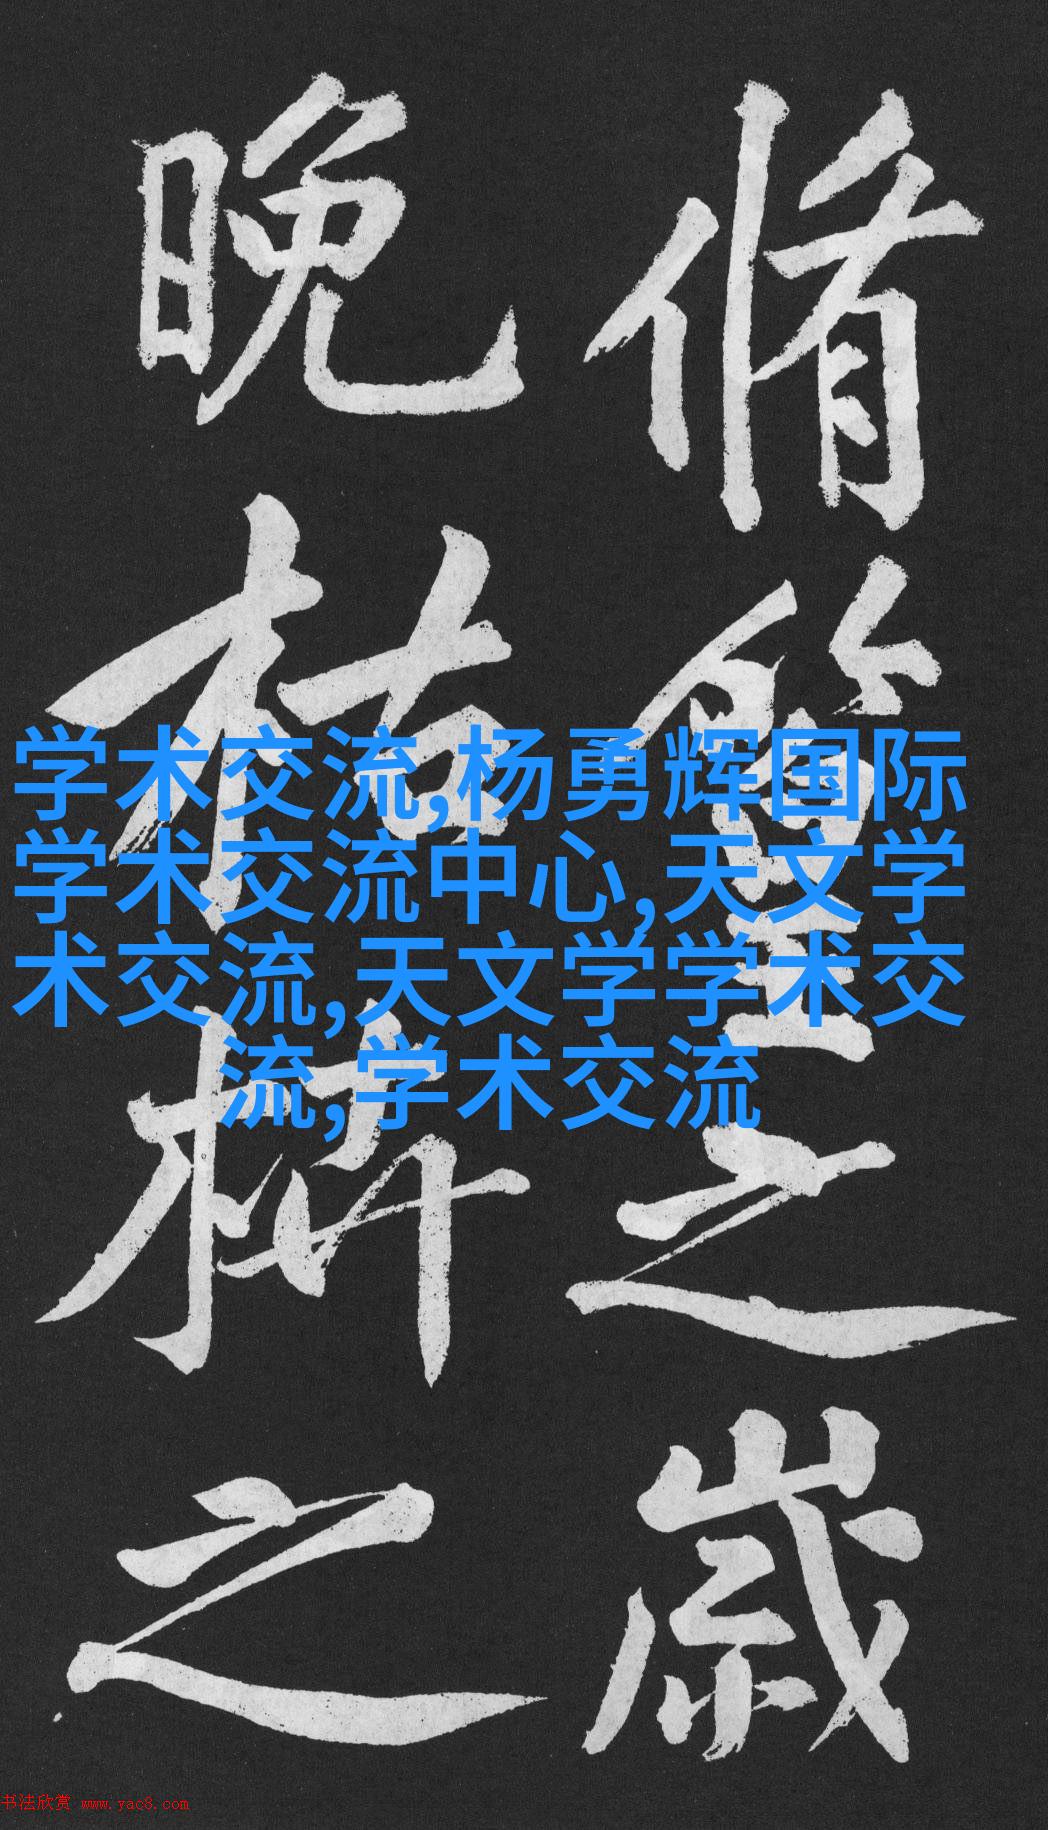 脩篁之歲
晚枯枿之
学术交流,杨勇辉国际
学术交流中心,天文学
术交流,天文学学术交
流,学术交流
书法欣赏 www.yac8.com